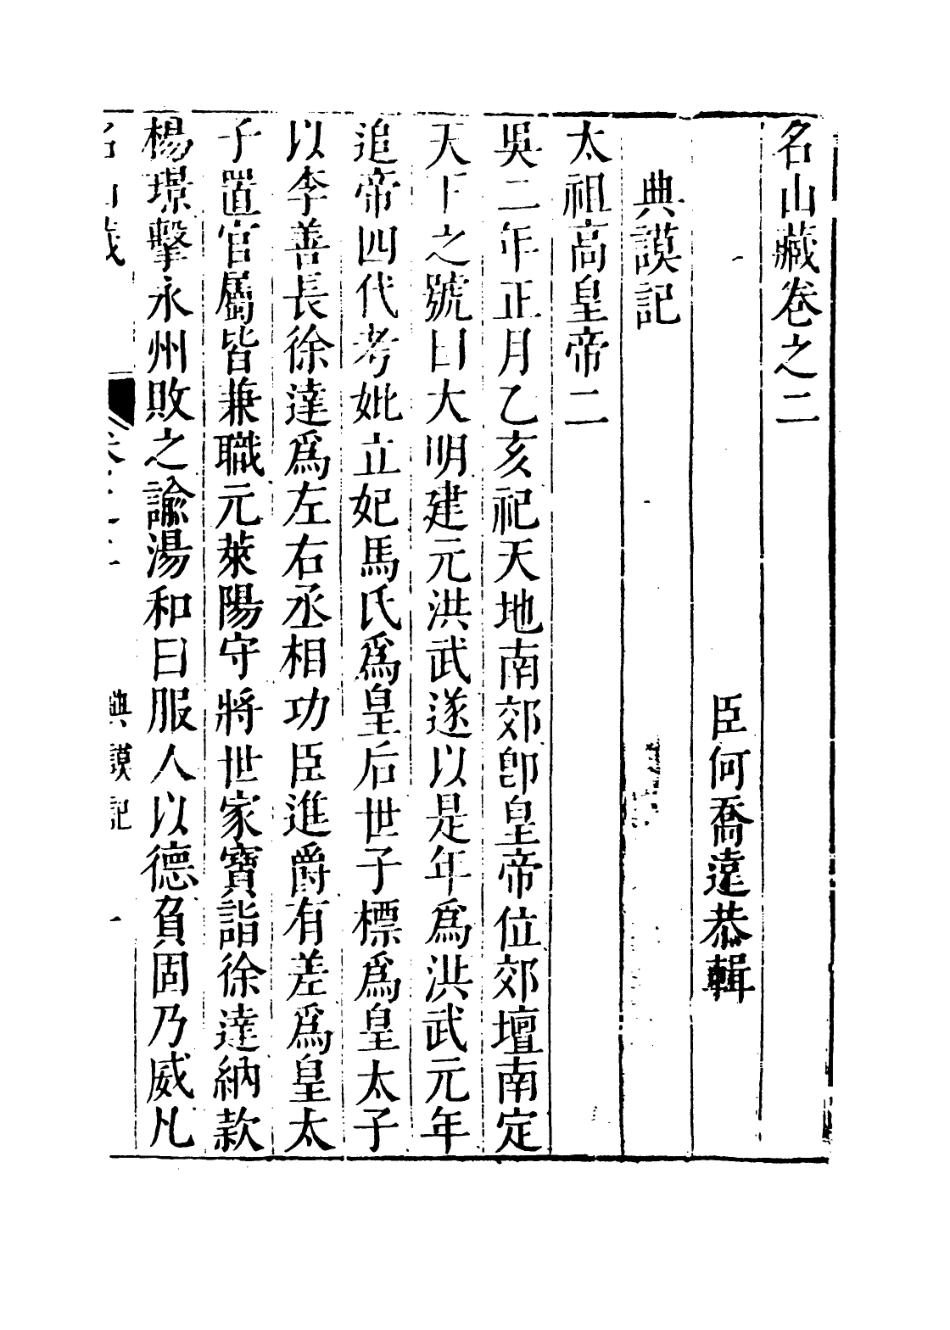 名山藏卷之二
臣何喬遠恭輯
典謨記
太祖高皇帝二
吳二年正月乙亥祀天地南郊卽皇帝位郊壇南定
天下之號曰大明建元洪武遂以是年爲洪武元年
追帝四代考妣立妃馬氏爲皇后世子標爲皇太子
以李善長徐達爲左右丞相功臣進爵有差爲皇太
子置官屬皆兼職元萊陽守將世家寶詣徐達納款
楊璟擊永州敗之諭湯和曰服人以德負固乃威凡
名山藏 卷之二 典謨記 一